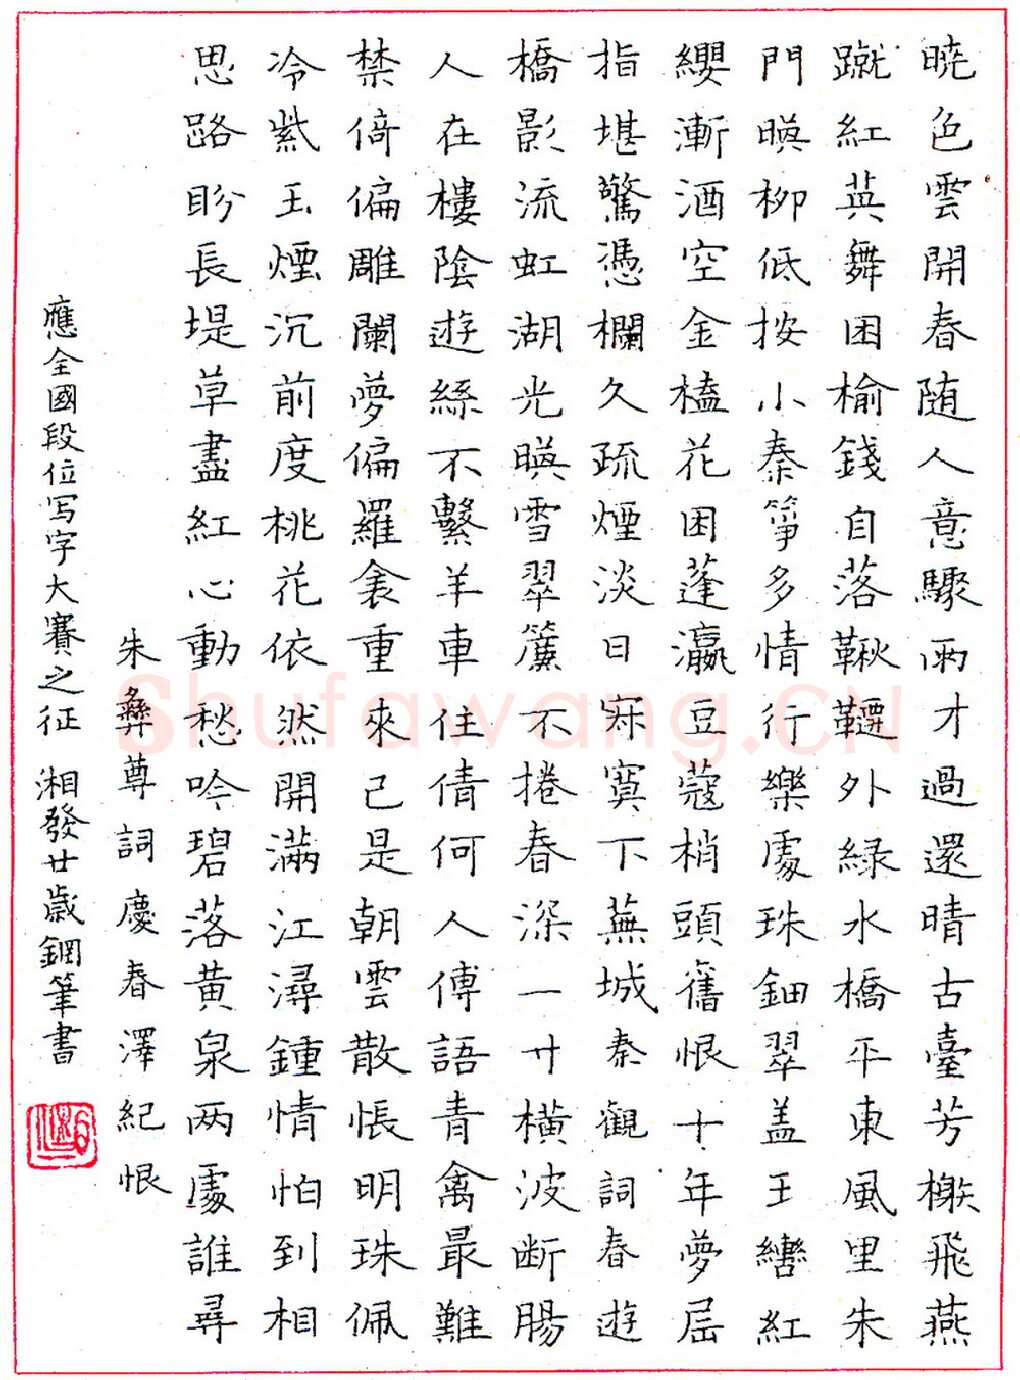 暁色雲開春随人意驟雨才過還晴古臺芳榭飛燕
蹴紅英舞困榆錢自落鞦韆外緑水橋平東風里朱
門暎柳低按小秦筝多情行樂處珠鈿翠盖玉轡紅
纓漸酒空金榼花困蓬瀛豆蔻梢頭舊恨十年夢屈
指堪驚憑欄久疏煙淡日寂寞下蕪城秦觀詞春遊
橋影流虹湖光暎雪翠簾不捲春深一寸横波断腸
人在樓陰遊絲不繫羊車住倩何人傳語青禽最難
禁倚偏雕闌夢偏羅衾重來已是朝雲散悵明珠佩
冷紫玉煙沉前度桃花依然開滿江潯鍾情怕到相
思路盼長堤草盡紅心動愁吟碧落黄泉两處誰尋
朱彝尊詞慶春澤紀恨
應全國段位写字大賽之征 湘發廿歲鋼筆書
Shufawang.CN